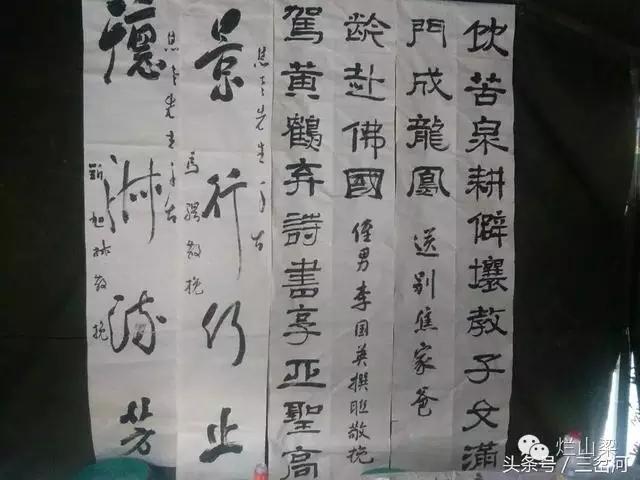 饮苦泉耕僻壤教子女满
門成龍鳳
送别焦家爸
齡赴佛國
侄男李国英撰联敬挽
駕黄鶴弃詩書享亚聖高
先生千古
景行行止
敬挽
先生千古
德流芳
靳旭林敬挽
烂山梁
头条号／三岔河